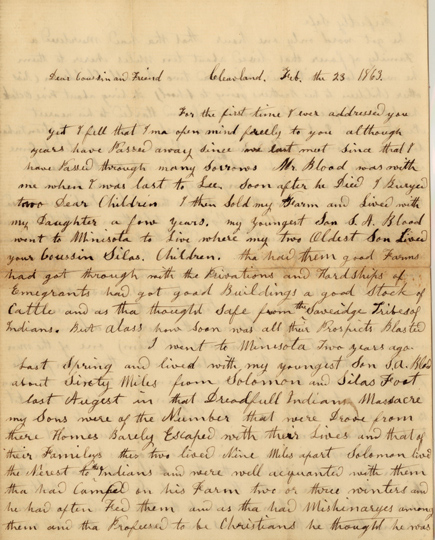 Dear Coussin and Friend Cleavland. Feb. the 23 1863.
For the first time I ever addressed you
yet I fell that I ma open mind freely to you although
years have Passed away since we last meet Since that I
have Passed through many Sorrows Mr. Blood was with
me when I was last to Lee. Soon after he Died I Buryed
two Dear Children I then Sold my Farm and Lived with
my Daughter a fow years. my youngest Son S. A. Blood
went to Minisota to Live where my two Oldest Son Lived
your Coussin Silas. Children. tha had them good Farms
had got through with the Privations and Hardships of
Emegrants had got good Buildings a good Stock of
Cattle and as tha thought Safe from the Saveidge Tribes of
Indians. But alass how Soon was all their Prospects Blasted
I went to Minisota Two years ago
Last Spring and lived with my youngest Son S.A. Blood
about Sixty Miles from Solomon and Silas Foot
last Augest in that Dreadfull Indians Massacre
my Sons were of the Number that were Drove from
there Homes Barely Escaped with their Lives and that of
their Familys the two lived Nine Miles apart Solomon lived
the Nerest to the Indians and were well acquanted with them
tha had Camped on his Farm two or three winters and
he had often Fed them and as tha had Mishenaryes among
them and tha Professed to be Christians he thought he was